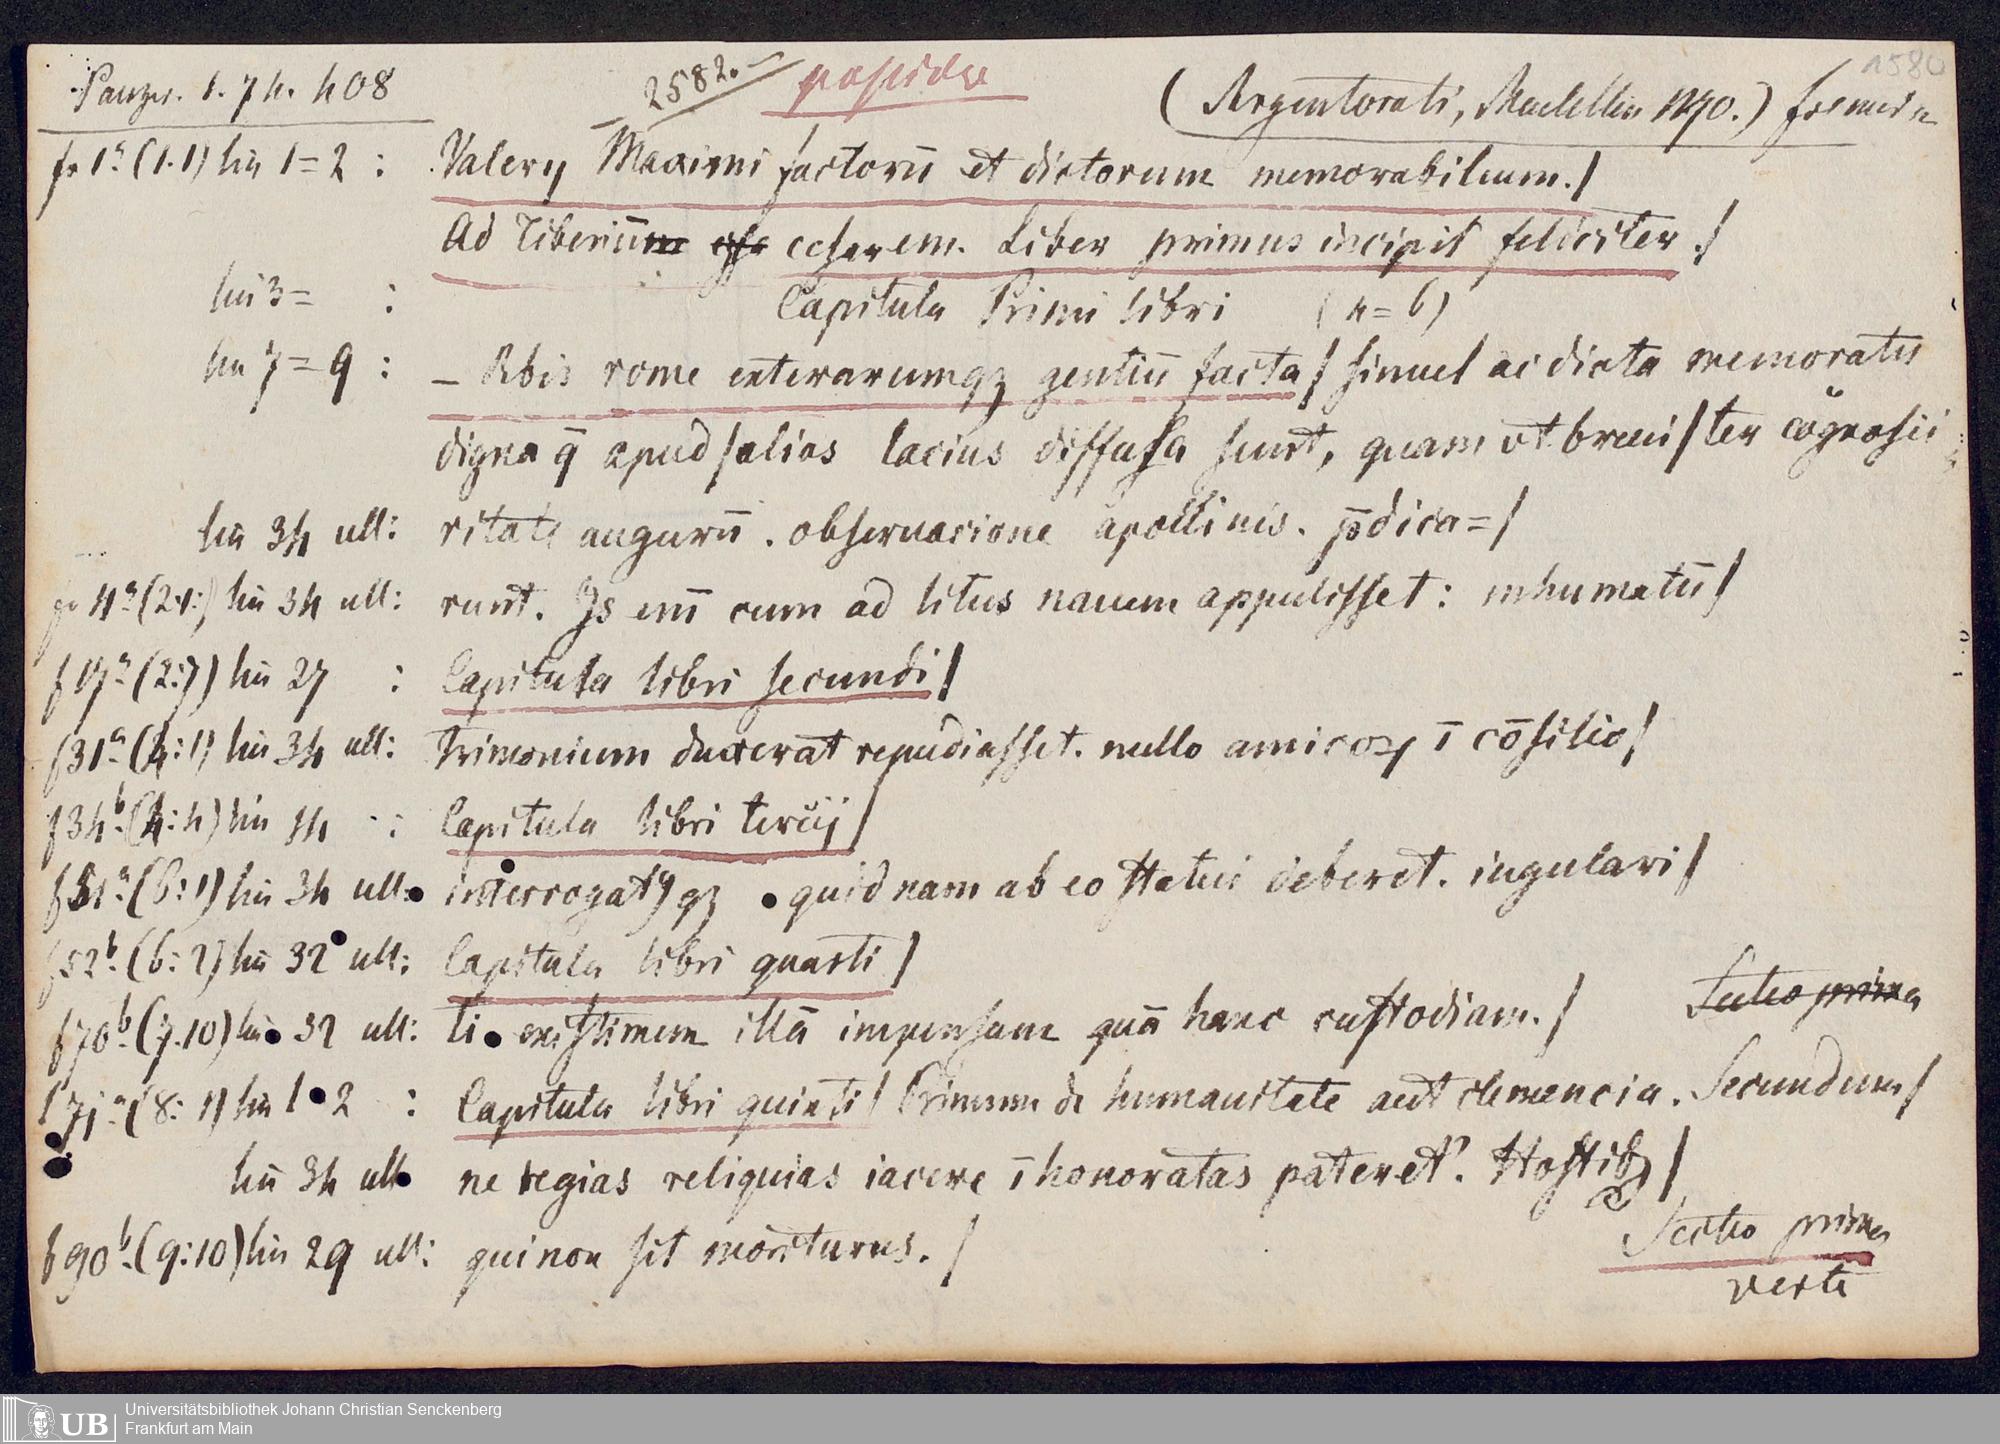 Panzer. 1. 74. 408
2582.
1580
(Argentorati, Mentellin 1470.)
f. 1ᵃ (1.1) lin 1=2 : Valerij Maximi factorū et dictorum memorabilium./
Ad Tiberiū cesarem. Liber primus incipit feliciter./
lin 3= : Capitula Primi libri (4=6)
lin 7=9 : – Rbis rome exterarumqꝫ gentiū facta/ simul ac dicta memoratu
digna q̄ apud/alios lacius diffusa sunt, quam vt breui/ter cōgnosci
lin 34 ult: ritate augurū . obseruacione apollinis. p̄dica=/
4ᵃ (2:1) lin 34 ult: runt. Is em̄ cum ad litus nauem appulisset: inhumatū/
f 17ᵃ (2:7) lin 27 : Capitula libri secundi/
f 31ᵃ (4:1) lin 34 ult: trimonium duxerat repudiasset. nullo amicoꝝ ī cōsilio/
f 34ᵇ (4:4) lin 14 : Capitula libri tercij/
f 51ᵃ (6:1) lin 34 ult: interrogatꝰqꝫ quid nam ab eo statui deberet. iugulari/
f 52ᵇ (6:2) lin 32 ult: Capitula libri quarti/
Sectio prima
f 70ᵇ (7.10) lin 32 ult: ti. existimem illā impensam quā hanc custodiam./
f 71ᵃ (8:1) lin 1 2 : Capitula libri quinti/ Primum de humanitate aut clemencia. Secundum/
lin 34 ult: ne regias reliquias iacere īhonoratas pateret'. Hostibꝫ/
Sectio prima
f 90ᵇ (9:10) lin 29 ult: qui non sit moriturus./
verte
UB
Universitätsbibliothek Johann Christian Senckenberg
Frankfurt am Main